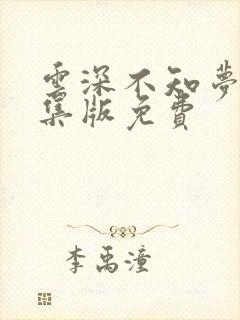 雲深不知夢
集版免費
李禹潼